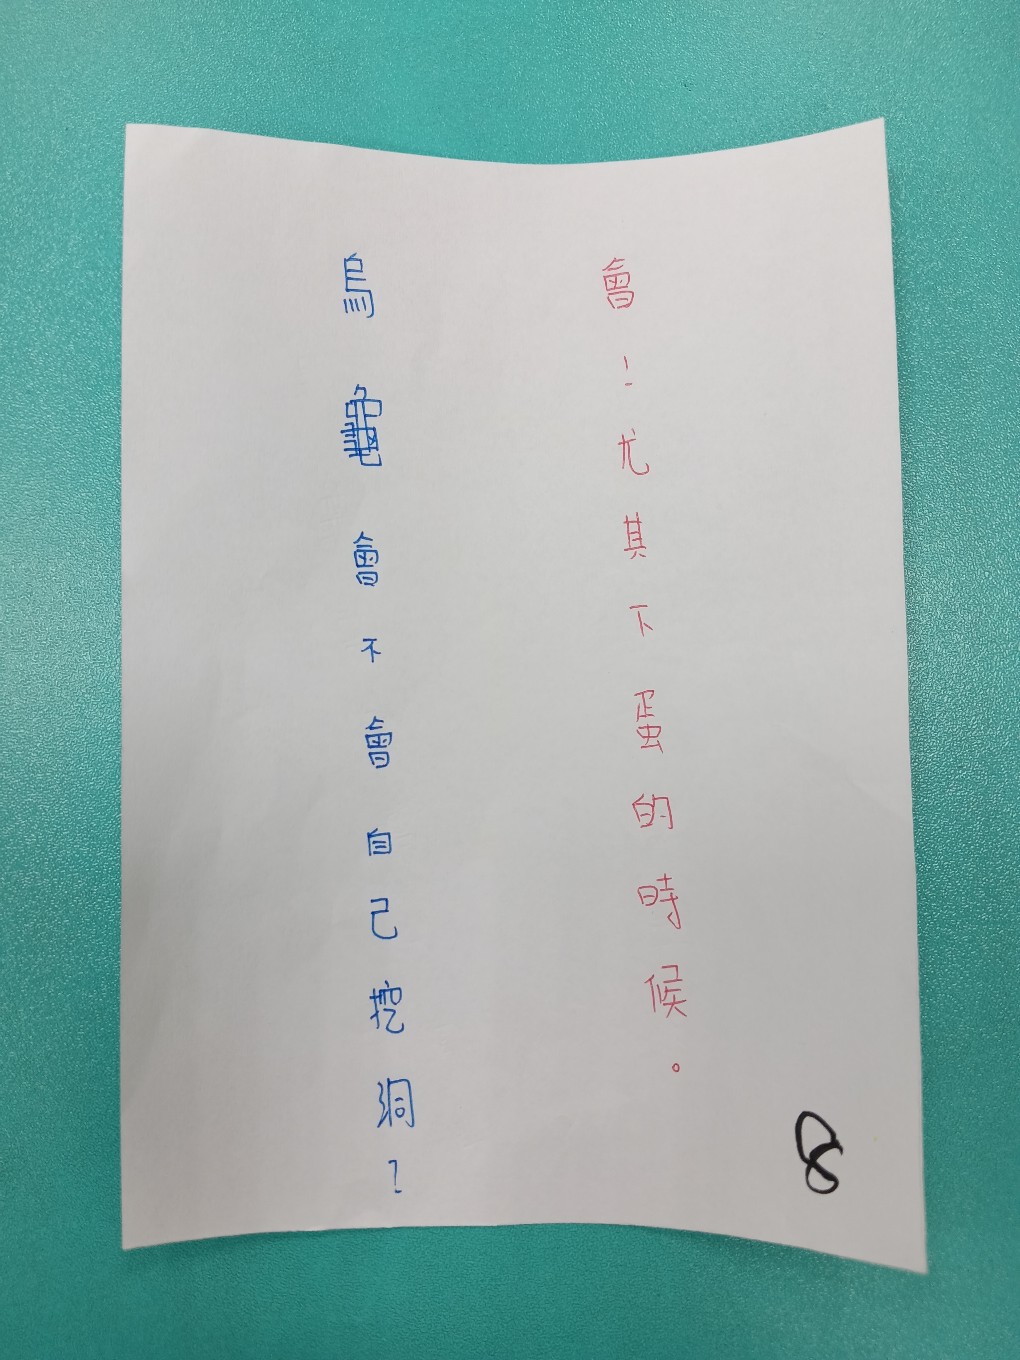 烏龜會不會自己挖洞？
會！尤其下蛋的時候。
8